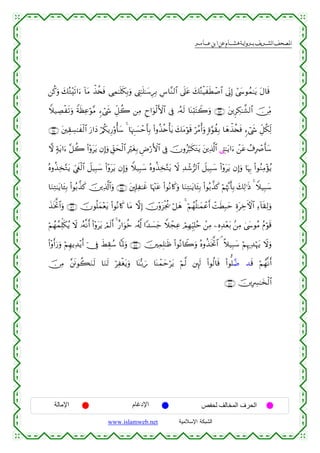 المصحف الشريف برواية هشام عن ابن عامر
قَالَ يَٰمُوسَىٰٓ إِنِّي ٱصۡطَفَيۡتُكَ عَلَى ٱلنَّاسِ بِرِسَٰلَٰتِي وَبِكَلَٰمِي فَخُذۡ مَآ ءَاتَيۡتُكَ وَكُن
مِّنَ ٱلشَّٰكِرِينَ وَكَتَبۡنَا لَهُۥ فِي ٱلۡأَلۡوَاحِ مِن كُلِّ شَيۡءٖ مَّوۡعِظَةٗ وَتَفۡصِيلٗا
لِّكُلِّ شَيۡءٖ فَخُذۡهَا بِقُوَّةٖ وَأۡمُرۡ قَوۡمَكَ يَأۡخُذُواْ بِأَحۡسَنِهَاۚ سَأُوْرِيكُمۡ دَارَ ٱلۡفَٰسِقِينَ
سَأَصۡرِفُ عَنۡ ءَايَٰتِيَ ٱلَّذِينَ يَتَكَبَّرُونَ فِي ٱلۡأَرۡضِ بِغَيۡرِ ٱلۡحَقِّ وَإِن يَرَوۡاْ كُلَّ ءَايَةٖ لَّا
يُؤۡمِنُواْ بِهَا وَإِن يَرَوۡاْ سَبِيلَ ٱلرُّشۡدِ لَا يَتَّخِذُوهُ سَبِيلٗا وَإِن يَرَوۡاْ سَبِيلَ ٱلۡغَيِّ يَتَّخِذُوهُ
سَبِيلٗاۚ ذَٰلِكَ بِأَنَّهُمۡ كَذَّبُواْ بِـَٔايَٰتِنَا وَكَانُواْ عَنۡهَا غَٰفِلِينَ وَٱلَّذِينَ كَذَّبُواْ بِـَٔايَٰتِنَا
وَلِقَآءِ ٱلۡأٓخِرَةِ حَبِطَتۡ أَعۡمَٰلُهُمۡۚ هَلۡ يُجۡزَوۡنَ إِلَّا مَا كَانُواْ يَعۡمَلُونَ وَٱتَّخَذَ
قَوۡمُ مُوسَىٰ مِنۢ بَعۡدِهِۦ مِنۡ حُلِيِّهِمۡ عِجۡلٗا جَسَدٗا لَّهُۥ خُوَارٌۚ أَلَمۡ يَرَوۡاْ أَنَّهُۥ لَا يُكَلِّمُهُمۡ
وَلَا يَهۡدِيهِمۡ سَبِيلًاۘ ٱتَّخَذُوهُ وَكَانُواْ ظَٰلِمِينَ وَلَمَّا سُقِطَ فِيٓ أَيۡدِيهِمۡ وَرَأَوۡاْ
أَنَّهُمۡ قَد ضَّلُّواْ قَالُواْ لَئِن لَّمۡ يَرۡحَمۡنَا رَبُّنَا وَيَغۡفِرۡ لَنَا لَنَكُونَنَّ مِنَ
ٱلۡخَٰسِرِينَ
الحرف المخالف لحفص الإدغام الإمالة
الشبكة الإسلامية www.islamweb.net